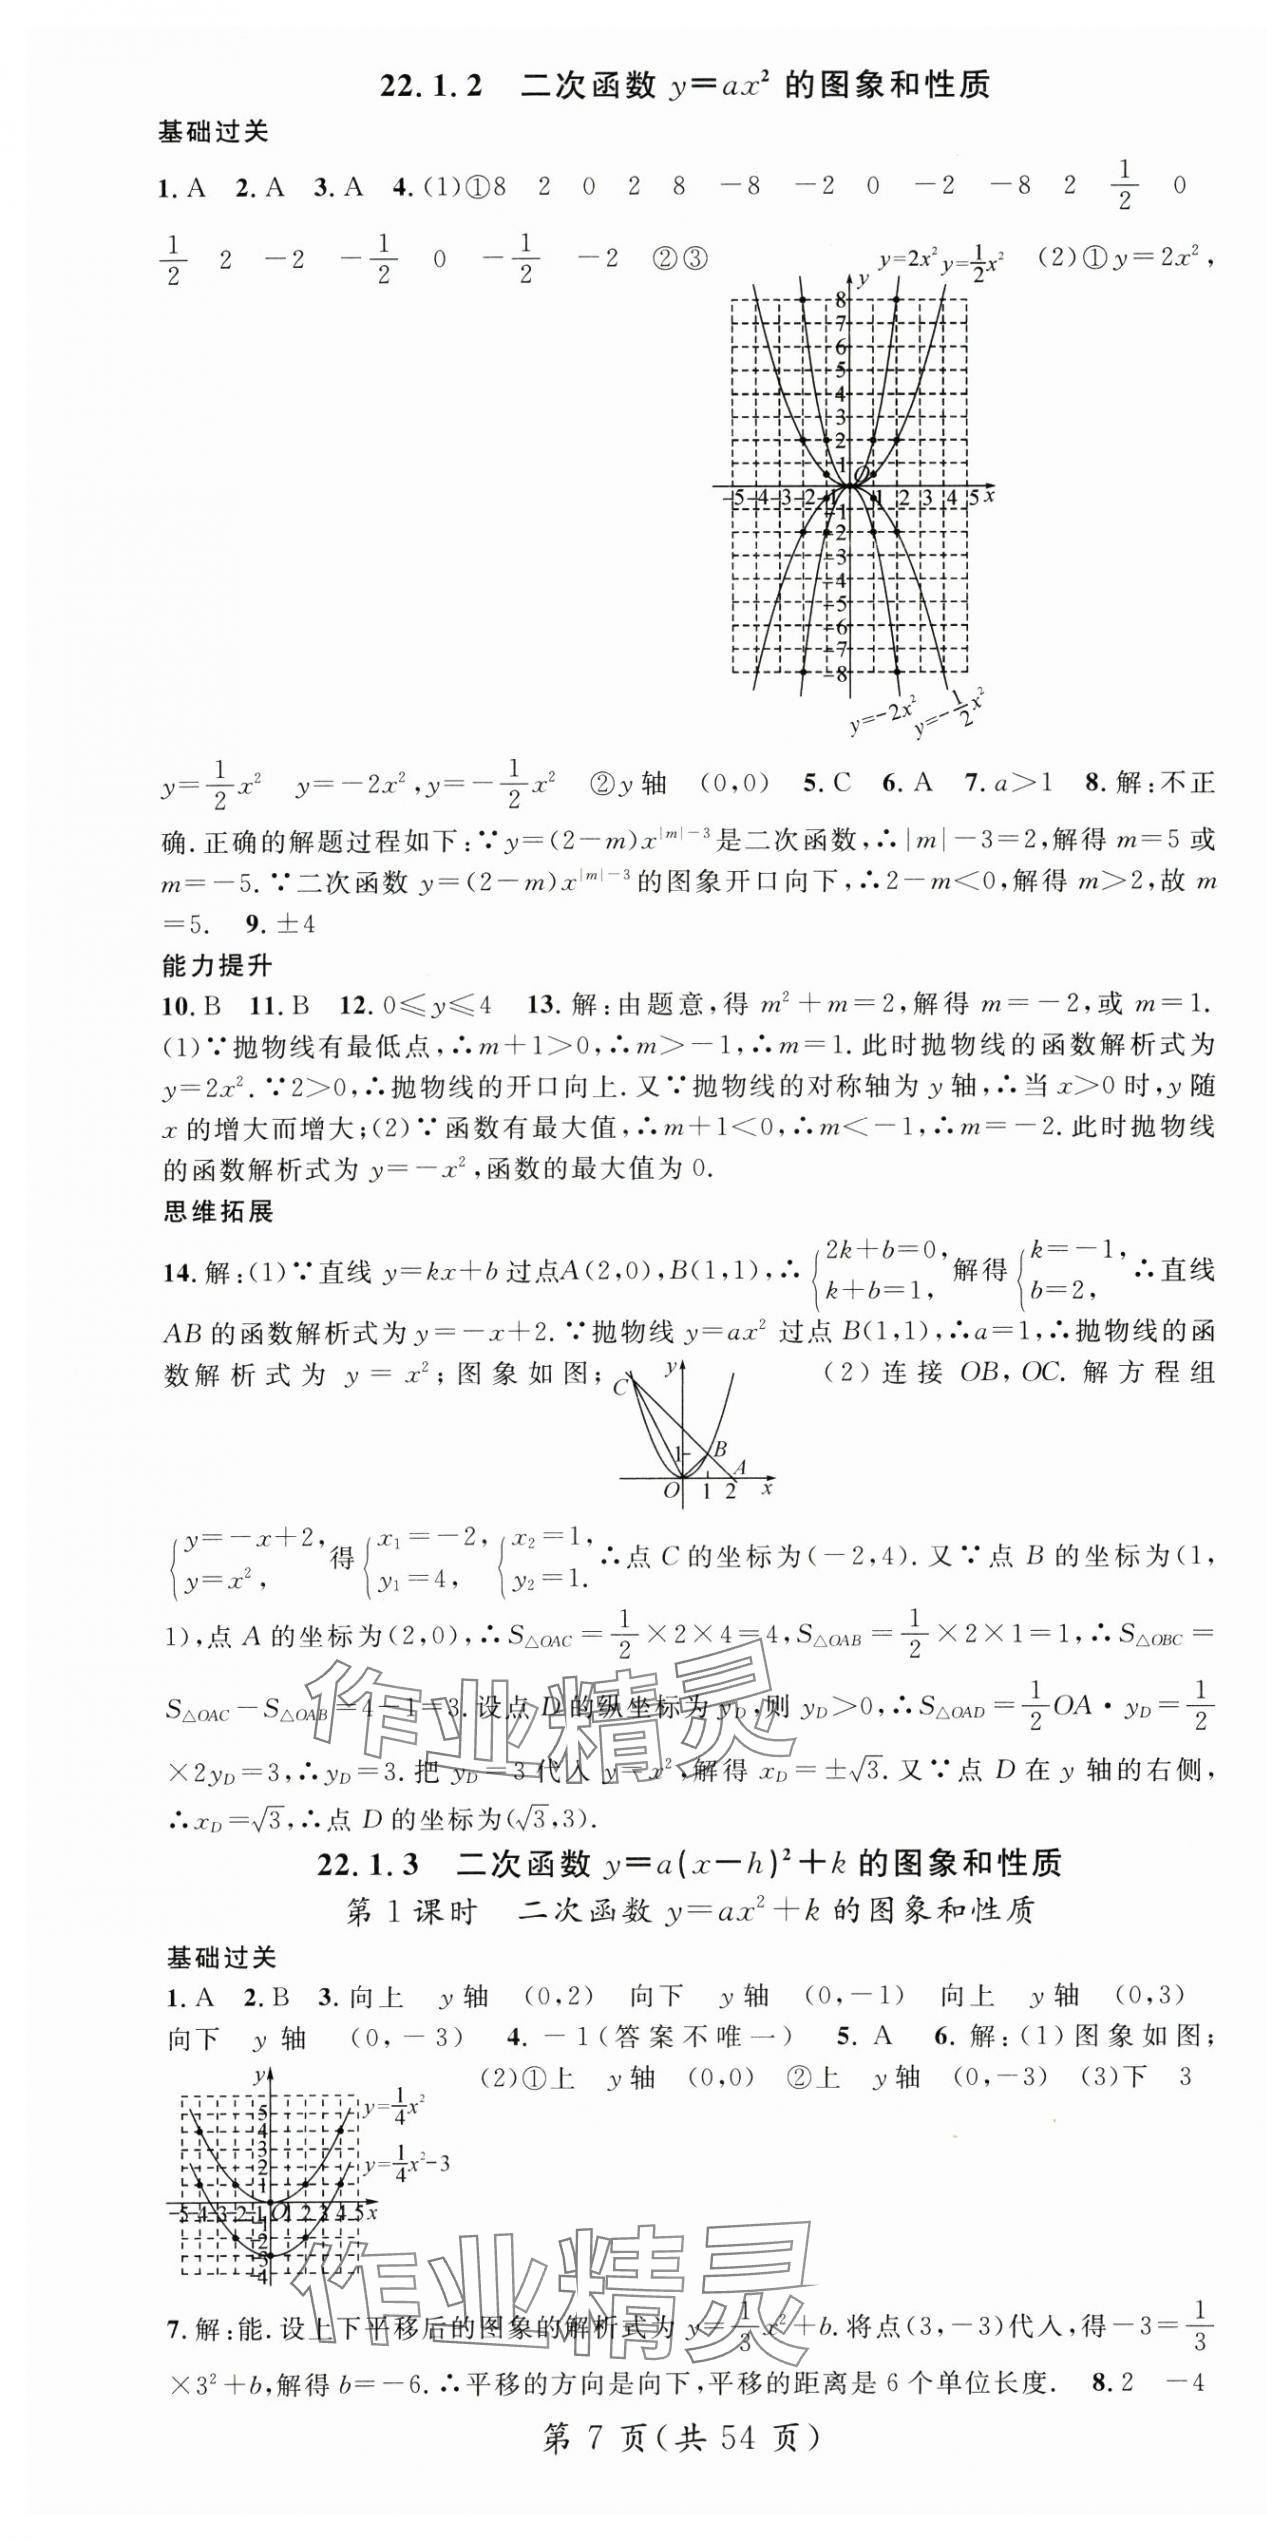 22.1.2 二次函数 y=ax² 的图象和性质
基础过关
1.A 2.A 3.A 4.(1)①8 2 0 2 8 －8 －2 0 －2 －8 2 1/2 0
1/2 2 －2 －1/2 0 －1/2 －2 ②③ (2)①y=2x²,
y=2x² y=1/2x²
y
8
7
6
5
4
3
2
1
O
-5 -4 -3 -2 -1 1 2 3 4 5 x
-1
-2
-3
-4
-5
-6
-7
-8
y=-2x² y=-1/2x²
y=1/2x² y=-2x²,y=-1/2x² ②y轴 (0,0) 5.C 6.A 7.a>1 8.解:不正
确.正确的解题过程如下:∵y=(2-m)x^{|m|-3}是二次函数,∴|m|-3=2,解得 m=5 或
m=-5.∵二次函数 y=(2-m)x^{|m|-3}的图象开口向下,∴2-m<0,解得 m>2,故 m
=5. 9.±4
能力提升
10.B 11.B 12.0≤y≤4 13.解:由题意,得 m²+m=2,解得 m=-2,或 m=1.
(1)∵抛物线有最低点,∴m+1>0,∴m>-1,∴m=1.此时抛物线的函数解析式为
y=2x².∵2>0,∴抛物线的开口向上.又∵抛物线的对称轴为 y 轴,∴当 x>0 时,y 随
x 的增大而增大;(2)∵函数有最大值,∴m+1<0,∴m<-1,∴m=-2.此时抛物线
的函数解析式为 y=-x²,函数的最大值为 0.
思维拓展
14.解:(1)∵直线 y=kx+b 过点A(2,0),B(1,1),∴{2k+b=0, k+b=1, 解得{k=-1, b=2, ∴直线
AB 的函数解析式为 y=-x+2.∵抛物线 y=ax² 过点 B(1,1),∴a=1,∴抛物线的函
数解析式为 y=x²;图象如图; (2)连接 OB,OC.解方程组
y
C
1
B
A
O 1 2 x
{y=-x+2, y=x², 得{x₁=-2, y₁=4, {x₂=1, y₂=1. ∴点 C 的坐标为(-2,4).又∵点 B 的坐标为(1,
1),点 A 的坐标为(2,0),∴S△OAC=1/2×2×4=4,S△OAB=1/2×2×1=1,∴S△OBC=
S△OAC-S△OAB=4-1=3.设点 D 的纵坐标为 y_D,则 y_D>0,∴S△OAD=1/2OA·y_D=1/2
×2y_D=3,∴y_D=3.把 y_D=3 代入 y=x²,解得 x_D=±√3.又∵点 D 在 y 轴的右侧,
∴x_D=√3,∴点 D 的坐标为(√3,3).
作业精灵
22.1.3 二次函数 y=a(x-h)²+k 的图象和性质
第 1 课时 二次函数 y=ax²+k 的图象和性质
基础过关
1.A 2.B 3.向上 y轴 (0,2) 向下 y轴 (0,-1) 向上 y轴 (0,3)
向下 y轴 (0,-3) 4.-1(答案不唯一) 5.A 6.解:(1)图象如图;
(2)①上 y轴 (0,0) ②上 y轴 (0,-3) (3)下 3
y
5
4
3
2
1
y=1/4x²
y=1/4x²-3
-5-4-3-2-1 O 1 2 3 4 5 x
-1
-2
-3
-4
作业精灵
7.解:能.设上下平移后的图象的解析式为 y=1/3x²+b.将点(3,-3)代入,得-3=1/3
×3²+b,解得 b=-6.∴平移的方向是向下,平移的距离是 6 个单位长度. 8.2 -4
第 7 页(共 54 页)